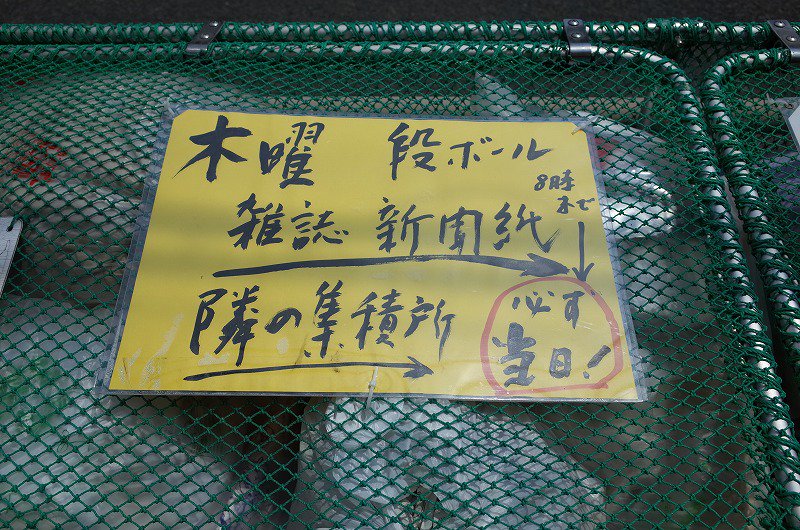 木曜 段ボール
8時
まで↓
雑誌 新聞紙
隣の集積所
必ず
当日!